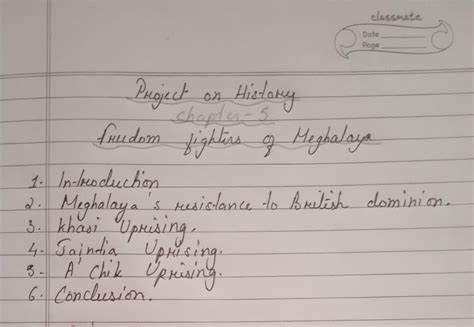 classmate
Date
Page
Project on History
chapter-5
freedom fighters of Meghalaya
1. Introduction
2. Meghalaya's resistance to British dominion.
3. Khasi Uprising.
4. Jaindia Uprising.
5. A'chik Uprising.
6. Conclusion.